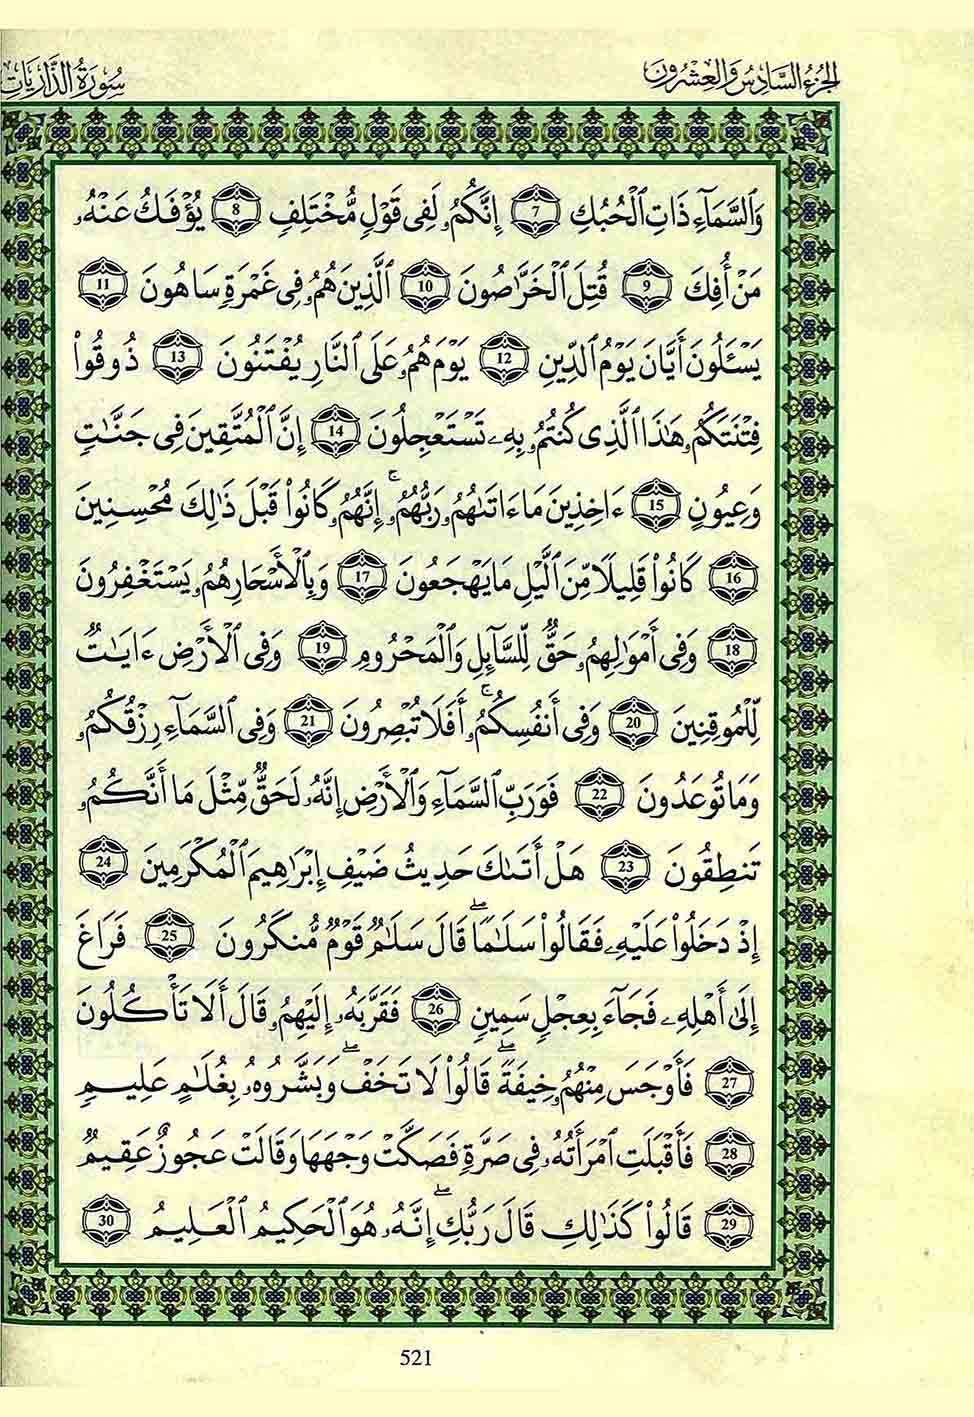 الجزء السادس والعشرون
سورة الذاريات
وَٱلسَّمَآءِ ذَاتِ ٱلْحُبُكِ 7 إِنَّكُمُۥ لَفِى قَوْلٍ مُّخْتَلِفٍ 8 يُؤْفَكُ عَنْهُۥ
مَنْ أُفِكَ 9 قُتِلَ ٱلْخَرَّٰصُونَ 10 ٱلَّذِينَ هُمُۥ فِى غَمْرَةٍ سَاهُونَ 11
يَسْـَٔلُونَ أَيَّانَ يَوْمُ ٱلدِّينِ 12 يَوْمَ هُمُۥ عَلَى ٱلنَّارِ يُفْتَنُونَ 13 ذُوقُوا۟
فِتْنَتَكُمُۥ هَٰذَا ٱلَّذِى كُنتُمُۥ بِهِۦ تَسْتَعْجِلُونَ 14 إِنَّ ٱلْمُتَّقِينَ فِى جَنَّٰتٍ
وَعِيُونٍ 15 ءَاخِذِينَ مَا ءَاتَىٰهُمُۥ رَبُّهُمُۥۚ إِنَّهُمُۥ كَانُوا۟ قَبْلَ ذَٰلِكَ مُحْسِنِينَ
16 كَانُوا۟ قَلِيلًا مِّنَ ٱلَّيْلِ مَا يَهْجَعُونَ 17 وَبِٱلْأَسْحَارِ هُمُۥ يَسْتَغْفِرُونَ
18 وَفِى أَمْوَٰلِهِمُۥ حَقٌّ لِّلسَّآئِلِ وَٱلْمَحْرُومِ 19 وَفِى ٱلْأَرْضِ ءَايَٰتٌ
لِّلْمُوقِنِينَ 20 وَفِى أَنفُسِكُمُۥۚ أَفَلَا تُبْصِرُونَ 21 وَفِى ٱلسَّمَآءِ رِزْقُكُمُۥ
وَمَا تُوعَدُونَ 22 فَوَرَبِّ ٱلسَّمَآءِ وَٱلْأَرْضِ إِنَّهُۥ لَحَقٌّ مِّثْلَ مَا أَنَّكُمُۥ
تَنطِقُونَ 23 هَلْ أَتَىٰكَ حَدِيثُ ضَيْفِ إِبْرَٰهِيمَ ٱلْمُكْرَمِينَ 24
إِذْ دَخَلُوا۟ عَلَيْهِۦ فَقَالُوا۟ سَلَٰمًاۖ قَالَ سَلَٰمٌ قَوْمٌ مُّنكَرُونَ 25 فَرَاغَ
إِلَىٰ أَهْلِهِۦ فَجَآءَ بِعِجْلٍ سَمِينٍ 26 فَقَرَّبَهُۥ إِلَيْهِمُۥ قَالَ أَلَا تَأْكُلُونَ
27 فَأَوْجَسَ مِنْهُمُۥ خِيفَةًۖ قَالُوا۟ لَا تَخَفْۖ وَبَشَّرُوهُۥ بِغُلَٰمٍ عَلِيمٍ
28 فَأَقْبَلَتِ ٱمْرَأَتُهُۥ فِى صَرَّةٍ فَصَكَّتْ وَجْهَهَا وَقَالَتْ عَجُوزٌ عَقِيمٌ
29 قَالُوا۟ كَذَٰلِكِ قَالَ رَبُّكِۖ إِنَّهُۥ هُوَ ٱلْحَكِيمُ ٱلْعَلِيمُ 30
521